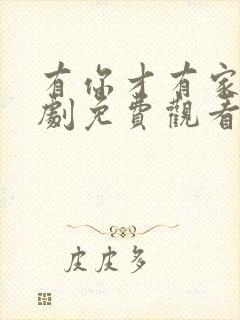 有你才有家
劇免費觀看
皮皮多